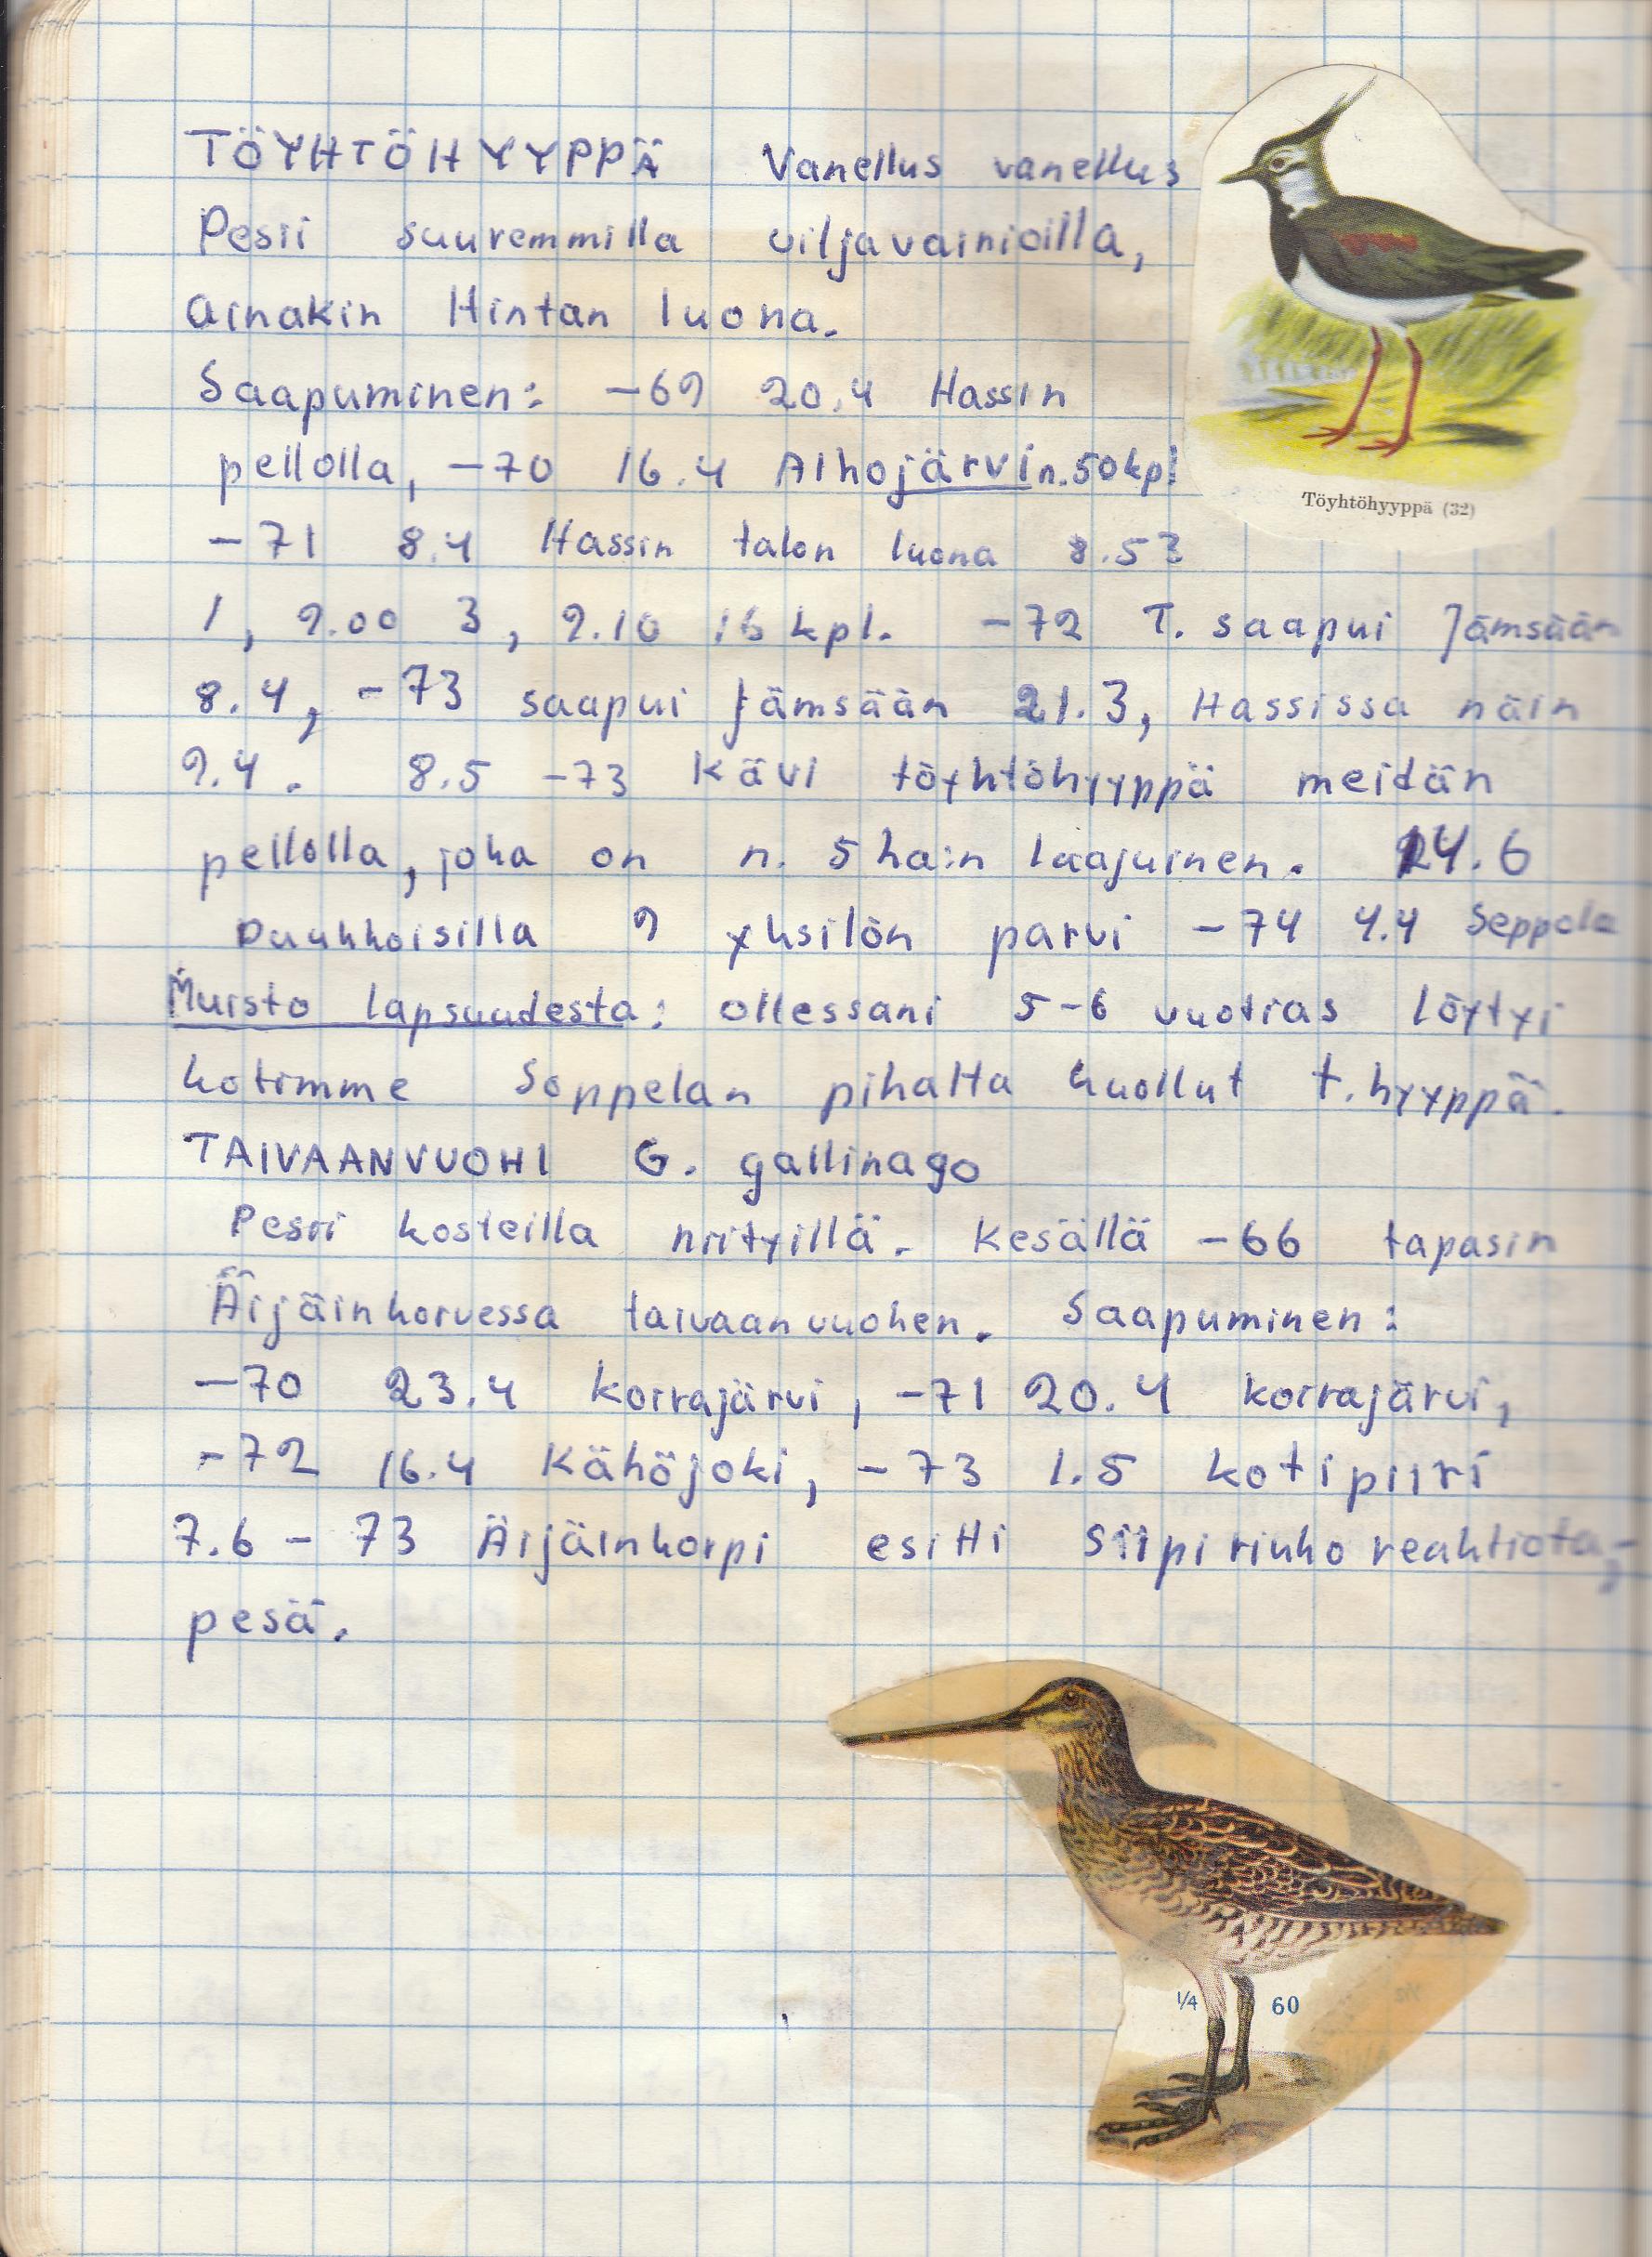 TÖYHTÖHYYPPÄ Vanellus vanellus
Pesii suuremmilla viljavainioilla,
ainakin Hintan luona.
Saapuminen: -69 20.4 Hassin
pellolla, -70 16.4 Alhojärvi n. 50 kpl
Töyhtöhyyppä (32)
-71 8.4 Hassin talon luona 8.53
1, 9.00 3, 9.10 16 kpl. -72 T. saapui Jämsään
8.4, -73 saapui Jämsään 21.3, Hassissa näin
9.4. 8.5 -73 kävi töyhtöhyyppä meidän
pellolla, joka on n. 5 ha:n laajuinen. 24.6
Puukkoisilla 9 yksilön parvi -74 4.4 Seppola
Muisto lapsuudesta: ollessani 5-6 vuotias löytyi
kotimme Soppelan pihalta kuollut t.hyyppä.
TAIVAANVUOHI G. gallinago
Pesii kosteilla niityillä. Kesällä -66 tapasin
Äijäinkorvessa taivaanvuohen. Saapuminen:
-70 23.4 Korrajärvi, -71 20.4 Korrajärvi,
-72 16.4 Kähöjoki, -73 1.5 kotipiiri
7.6 - 73 Äijäinkorpi esitti siipirikkoreaktiota,-
pesä.
1/4 60